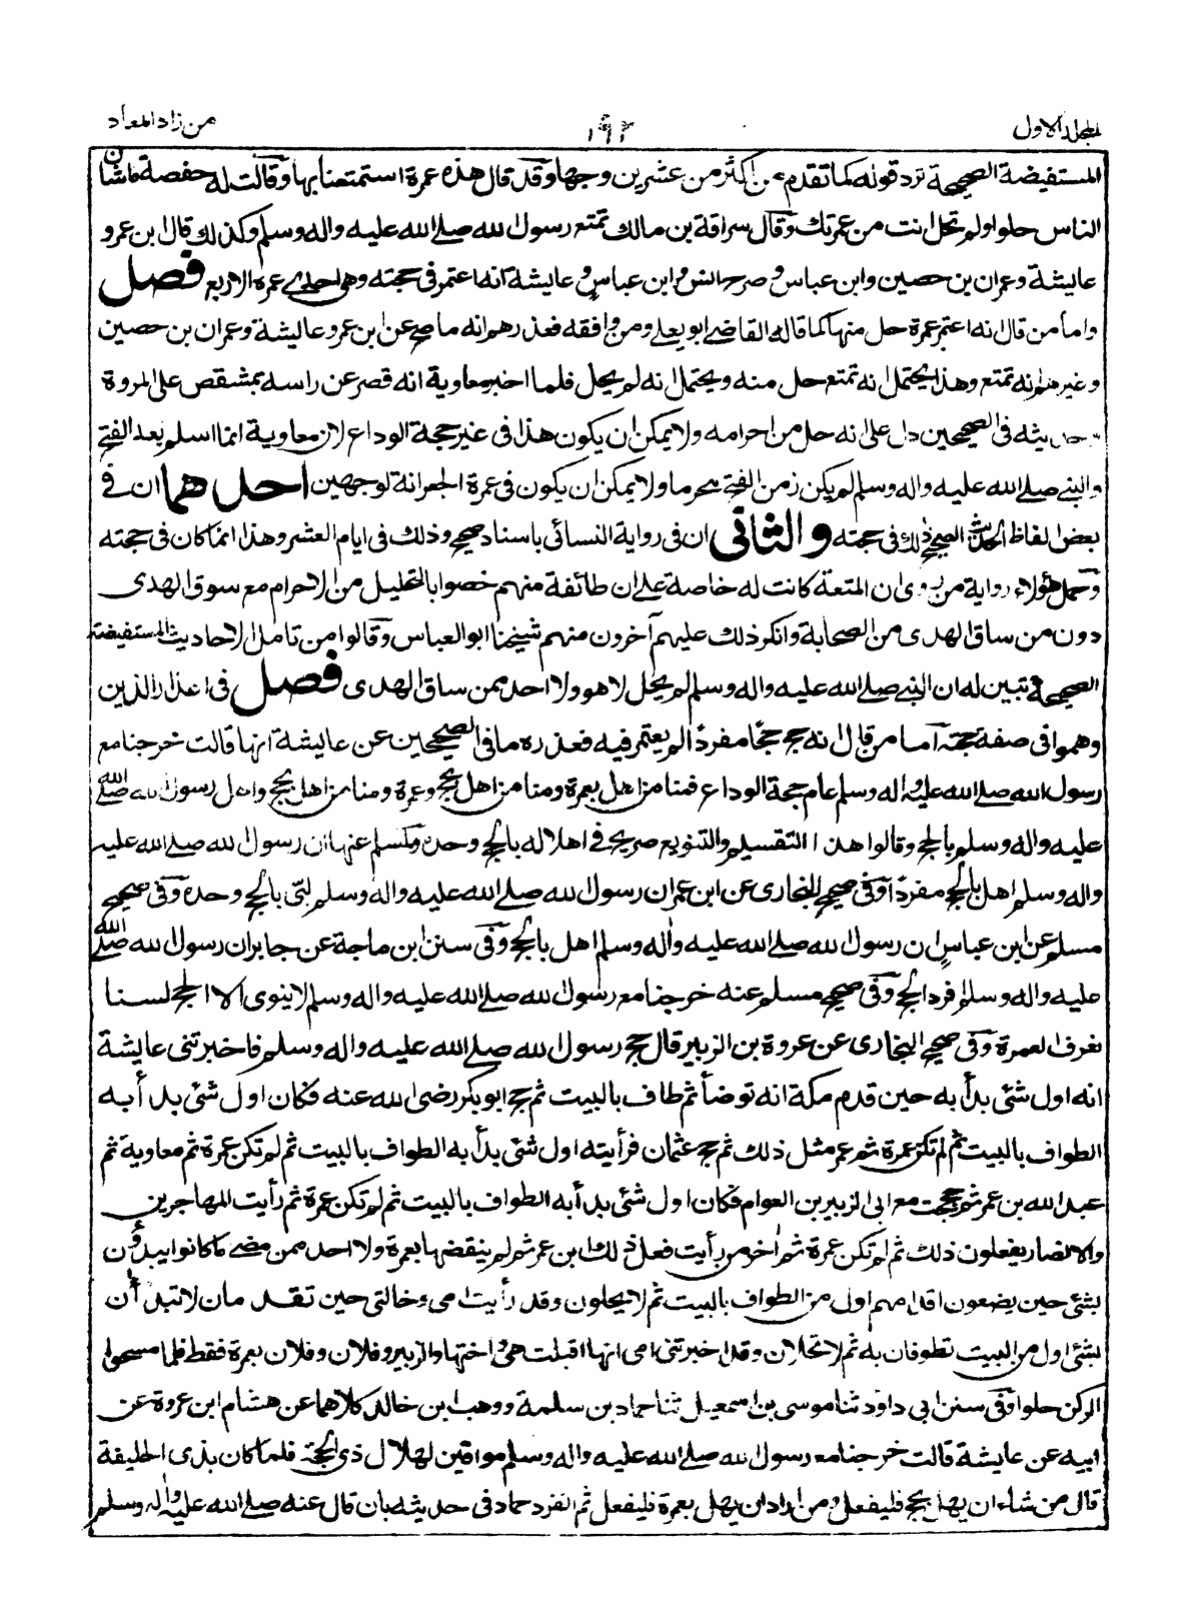 المجلد الاول
١٩٢
من زاد المعاد
المستفيضة الصحيحة ترد قوله كما تقدم عن اكثر من عشرين وجها وقد قال هذه عمرة استمتعنا بها وقالت له حفصة ما شان
الناس حلوا ولم تحل انت من عمرتك وقال سراقة بن مالك تمتع رسول الله صلے الله عليه واله وسلم وكذلك قال ابن عمر و
عايشة وعمران بن حصين وابن عباس و صرح انس و ابن عباس و عايشة انه اعتمر فى حجته وهى احدى عمره الاربع فصل
واما من قال انه اعتمر عمرة حل منها كما قاله القاضے ابو يعلے ومن وافقه فعذرهم انه ما صح عن ابن عمر و عايشة وعمران بن حصين
وغيرهم انه تمتع وهذا يحتمل انه تمتع حل منه ويحتمل انه لم يحل فلما اخبر معاوية انه قصر عن راسه بمشقص على المروة
وحديثه فى الصحيحين دل على انه حل من احرامه ولا يمكن ان يكون هذا فى غير حجة الوداع لان معاوية انما اسلم بعد الفتح
والنبے صلے الله عليه واله وسلم لم يكن زمن الفتح محرما ولا يمكن ان يكون فى عمرة الجعرانة لوجهين احدهما ان فے
بعض الفاظ الحديث الصحيح ذلك فى حجته والثانى ان فى رواية النسائى باسناد صحيح وذلك فى ايام العشر وهذا انما كان فى حجته
وحمل هؤلاء رواية من روى ان المتعة كانت له خاصة على ان طائفة منهم خصوا بالتحليل من الاحرام مع سوق الهدى
دون من ساق الهدى من الصحابة وانكر ذلك عليهم آخرون منهم شيخنا ابو العباس وقالوا من تامل الاحاديث المستفيضة
الصحيحة تبين له ان النبے صلے الله عليه واله وسلم لم يحل لا هو ولا احد ممن ساق الهدى فصل فى اعذار الذين
وهموا فى صفة حجته اما من قال انه حج حجا مفردا لم يعتمر فيه فعذره ما فى الصحيحين عن عايشة انها قالت خرجنا مع
رسول الله صلے الله عليه واله وسلم عام حجة الوداع فمنا من اهل بعمرة ومنا من اهل بحج وعمرة ومنا من اهل بحج واهل رسول الله صلے الله
عليه واله وسلم بالحج وقالوا هذا التقسيم والتنويع صريح فے اهلاله بالحج وحده ولمسلم عنها ان رسول الله صلے الله عليه
واله وسلم اهل بالحج مفردا وفى صحيح البخارى عن ابن عمر ان رسول الله صلے الله عليه واله وسلم لبّى بالحج وحده وفى صحيح
مسلم عن ابن عباس ان رسول الله صلے الله عليه واله وسلم اهل بالحج وفى سنن ابن ماجة عن جابر ان رسول الله صلے الله
عليه واله وسلم افرد الحج وفى صحيح مسلم عنه خرجنا مع رسول الله صلے الله عليه واله وسلم لا ينوى الا الحج لسنا
نعرف العمرة وفى صحيح البخارى عن عروة بن الزبير قال حج رسول الله صلے الله عليه واله وسلم فاخبرتنى عايشة
انه اول شئى بدأ به حين قدم مكة انه توضأ ثم طاف بالبيت ثم حج ابو بكر رضى الله عنه فكان اول شئى بدأ به
الطواف بالبيت ثم لم تكن عمرة ثم عمر مثل ذلك ثم حج عثمان فرأيته اول شئى بدأ به الطواف بالبيت ثم لم تكن عمرة ثم معاوية ثم
عبد الله بن عمر ثم حججت مع ابى الزبير بن العوام فكان اول شئى بدأ به الطواف بالبيت ثم لم تكن عمرة ثم رأيت المهاجرين
والانصار يفعلون ذلك ثم لم تكن عمرة ثم اخر من رأيت فعل ذلك ابن عمر ثم لم ينقضها بعمرة ولا احد ممن مضے ما كانوا يبدؤن
بشئى حين يضعون اقدامهم اول من الطواف بالبيت ثم لا يحلون وقد رأيت امى وخالتى حين تقدمان لا تبدأان
بشئى اول من البيت تطوفان به ثم لا تحلان وقد اخبرتنى امى انها اقبلت هى واختها والزبير وفلان وفلان بعمرة فقط فلما مسحوا
الركن حلوا وفى سنن ابى داود ثنا موسى بن اسمعيل ثنا حماد بن سلمة ووهب ابن خالد كلاهما عن هشام ابن عروة عن
ابيه عن عايشة قالت خرجنا مع رسول الله صلے الله عليه واله وسلم موافين لهلال ذى الحجة فلما كان بذى الحليفة
قال من شاء ان يهل بحج فليفعل ومن اراد ان يهل بعمرة فليفعل ثم انفرد حماد فى حديثه بان قال عنه صلے الله عليه واله وسلم